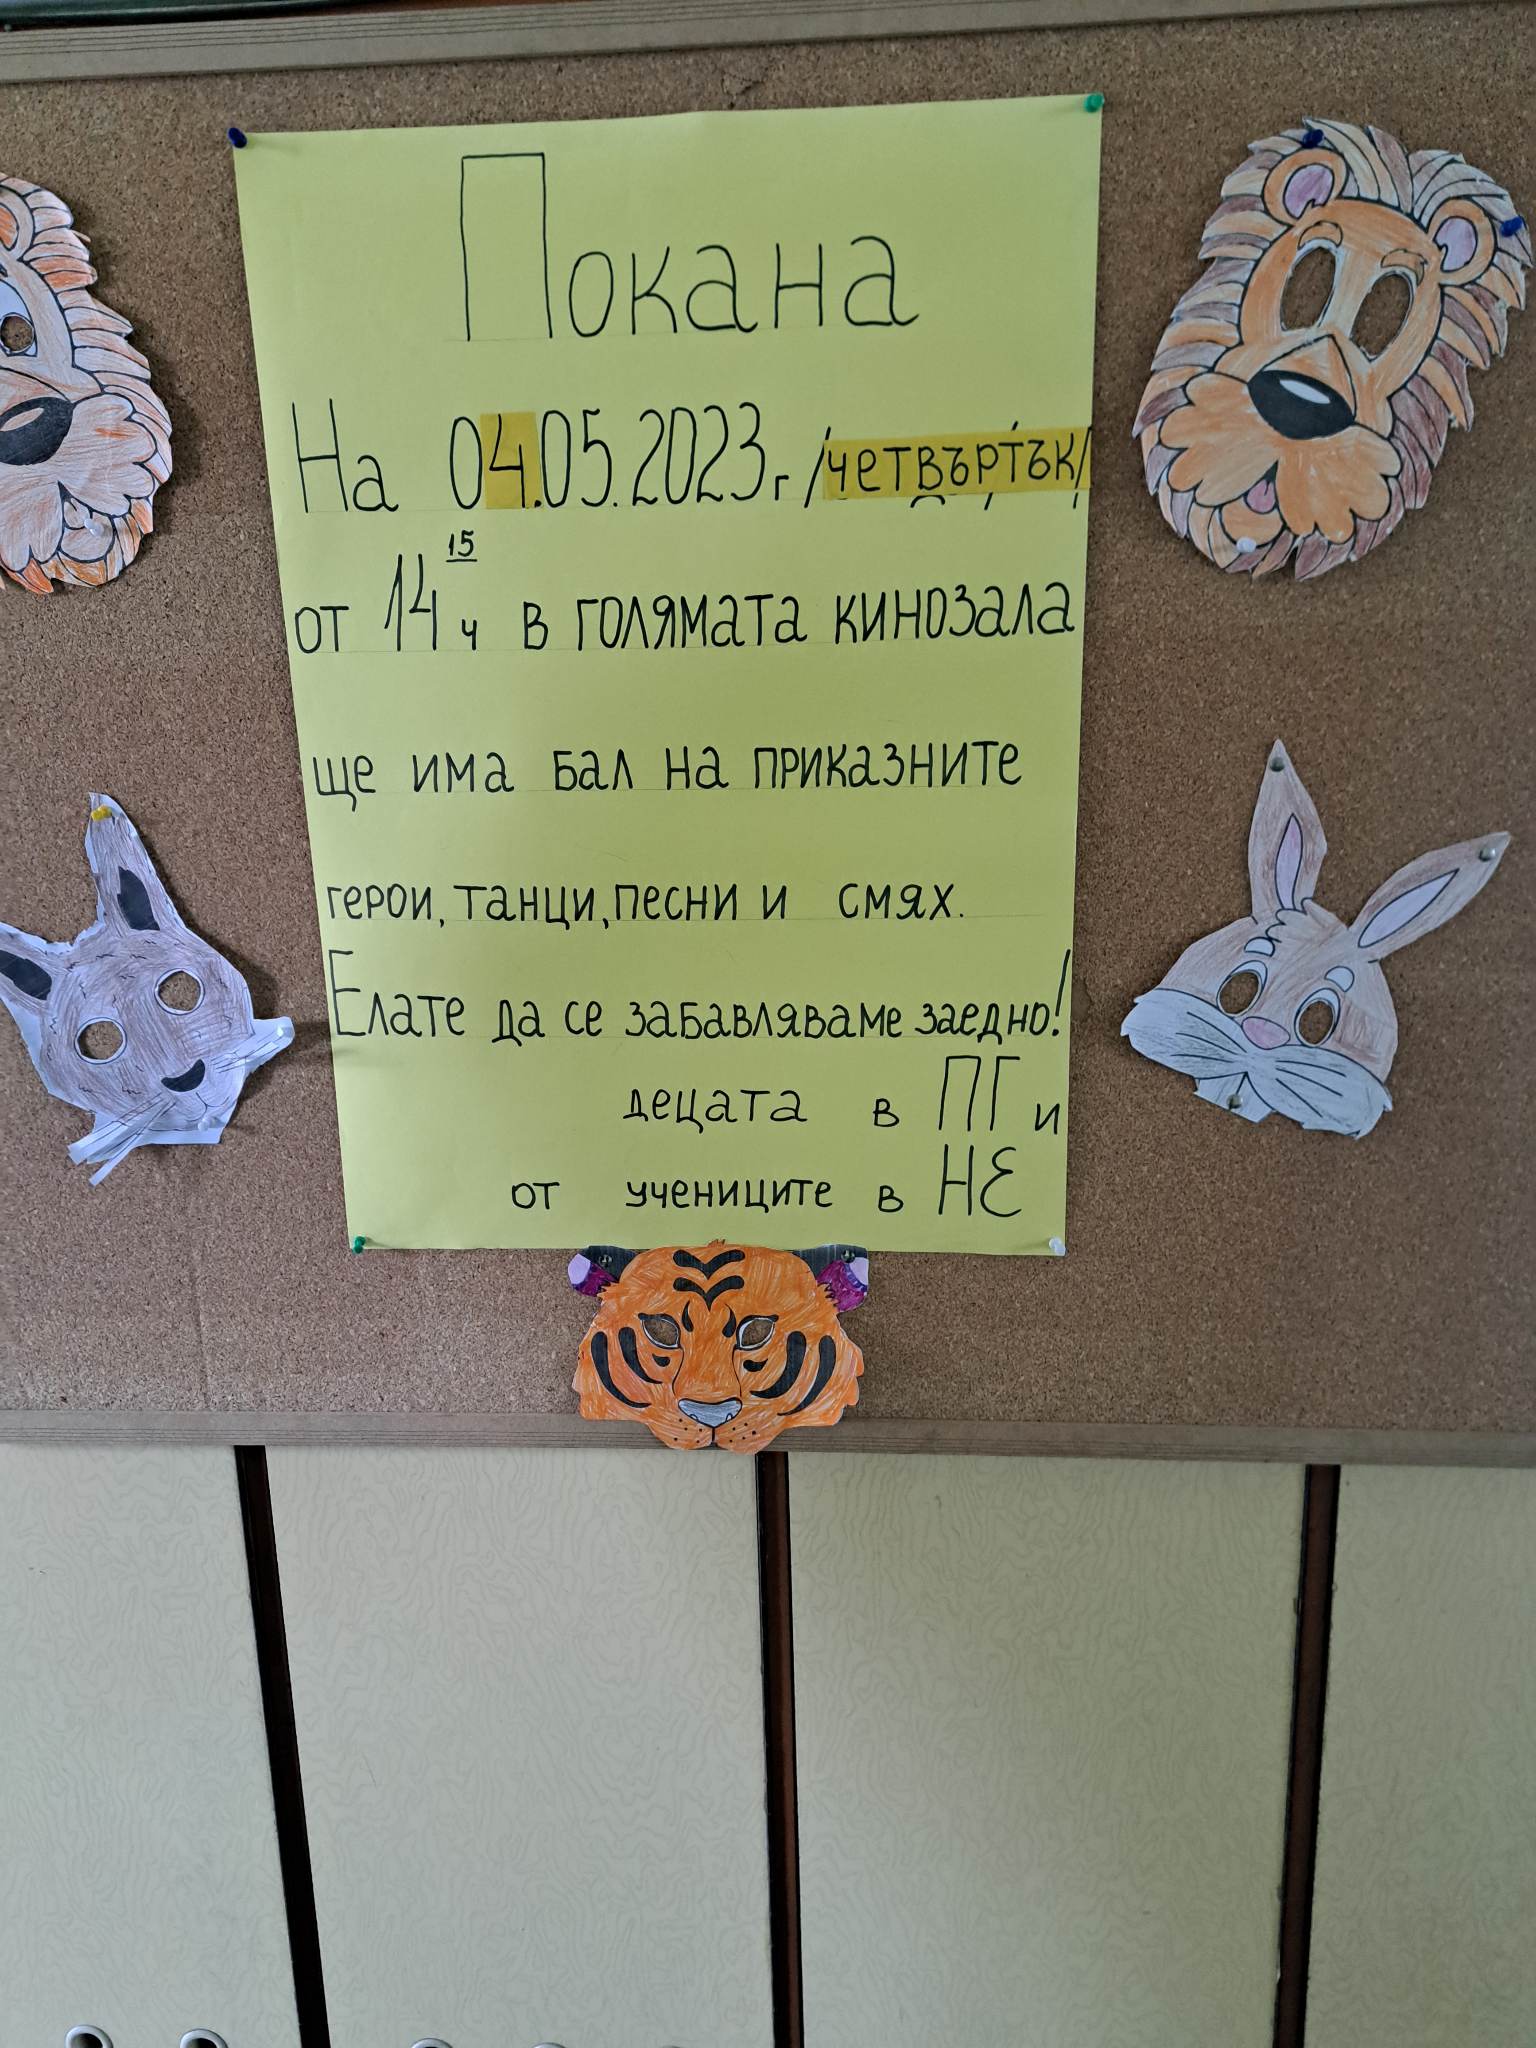 Покана
На 04.05.2023г /четвъртък/
от 14¹⁵ ч в голямата кинозала
ще има бал на приказните
герои, танци, песни и смях.
Елате да се забавляваме заедно!
децата в ПГ и
от учениците в НЕ